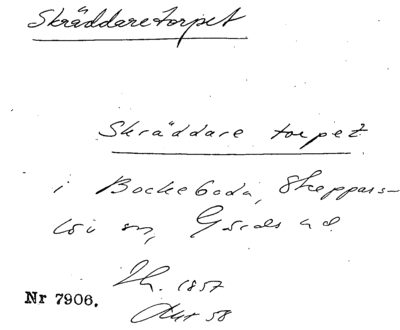 Skräddaretorpet
Skräddare torpet
i Bockeboda, Skeppars-
löv sn, Gärds hd.
Nr 7906.
1857
58